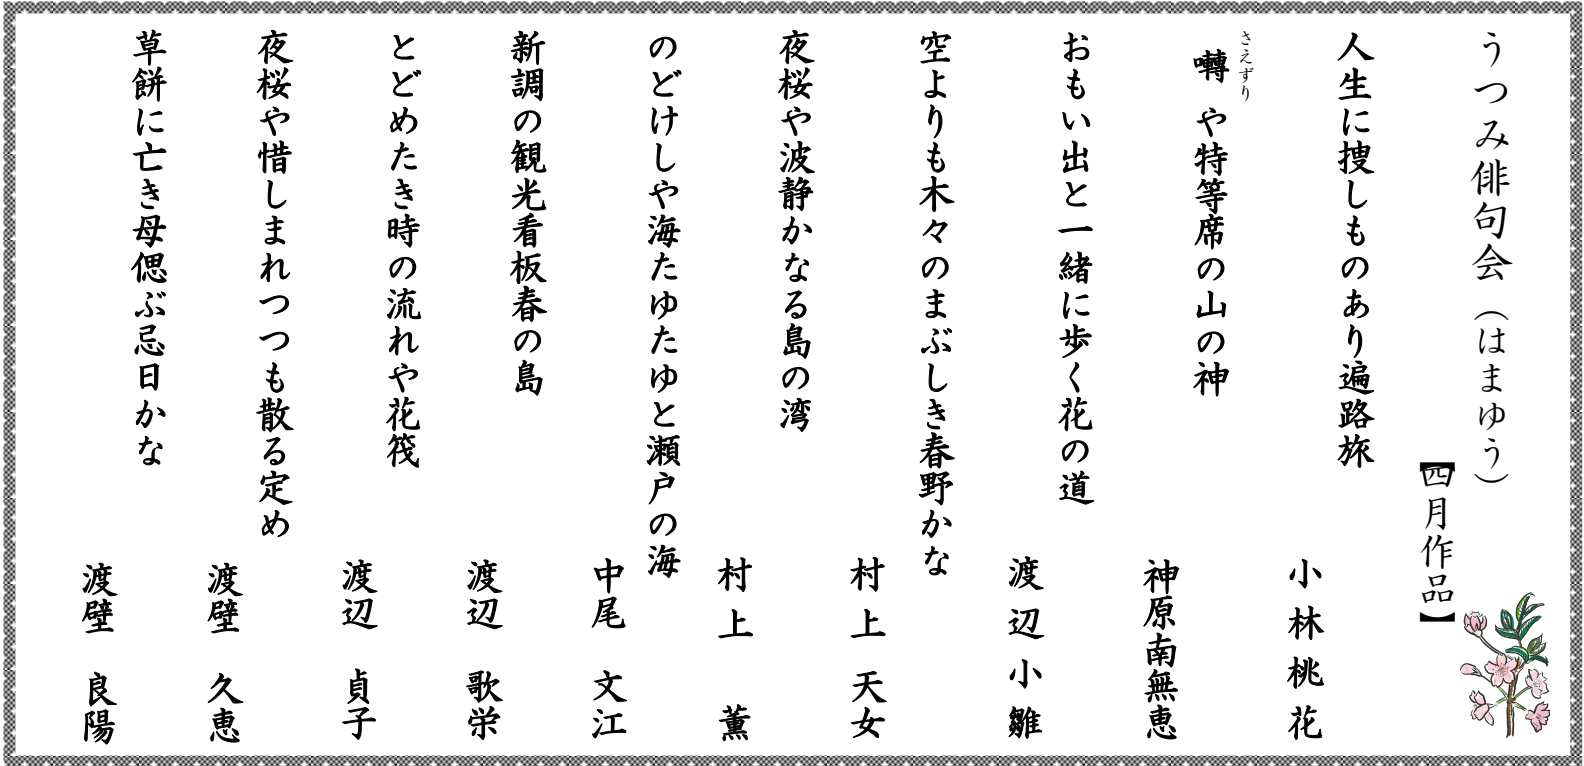 うつみ俳句会（はまゆう）
【四月作品】
人生に捜しものあり遍路旅
小林桃花
囀や特等席の山の神
さえずり
神原南無恵
おもい出と一緒に歩く花の道
渡辺小雛
空よりも木々のまぶしき春野かな
村上 天女
夜桜や波静かなる島の湾
村上 薫
のどけしや海たゆたゆと瀬戸の海
中尾 文江
新調の観光看板春の島
渡辺 歌栄
とどめたき時の流れや花筏
渡辺 貞子
夜桜や惜しまれつつも散る定め
渡壁 久恵
草餅に亡き母偲ぶ忌日かな
渡壁 良陽